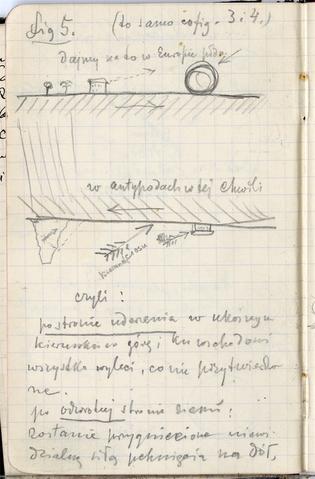 Fig 5. (to samo co fig. 3 i 4.)
Dajmy na to w Europie
w antypodach w tej chwili
kierunek ciosu
czyli:
po stronie uderzenia w ukośnym
kierunku w górę i ku wschodowi
wszystko wyleci, co nie przytwierdzo
ne.
po odwrotnej stronie ziemi:
zostanie przygniecione niewi-
dzialną siłą pchnięcia na dół,